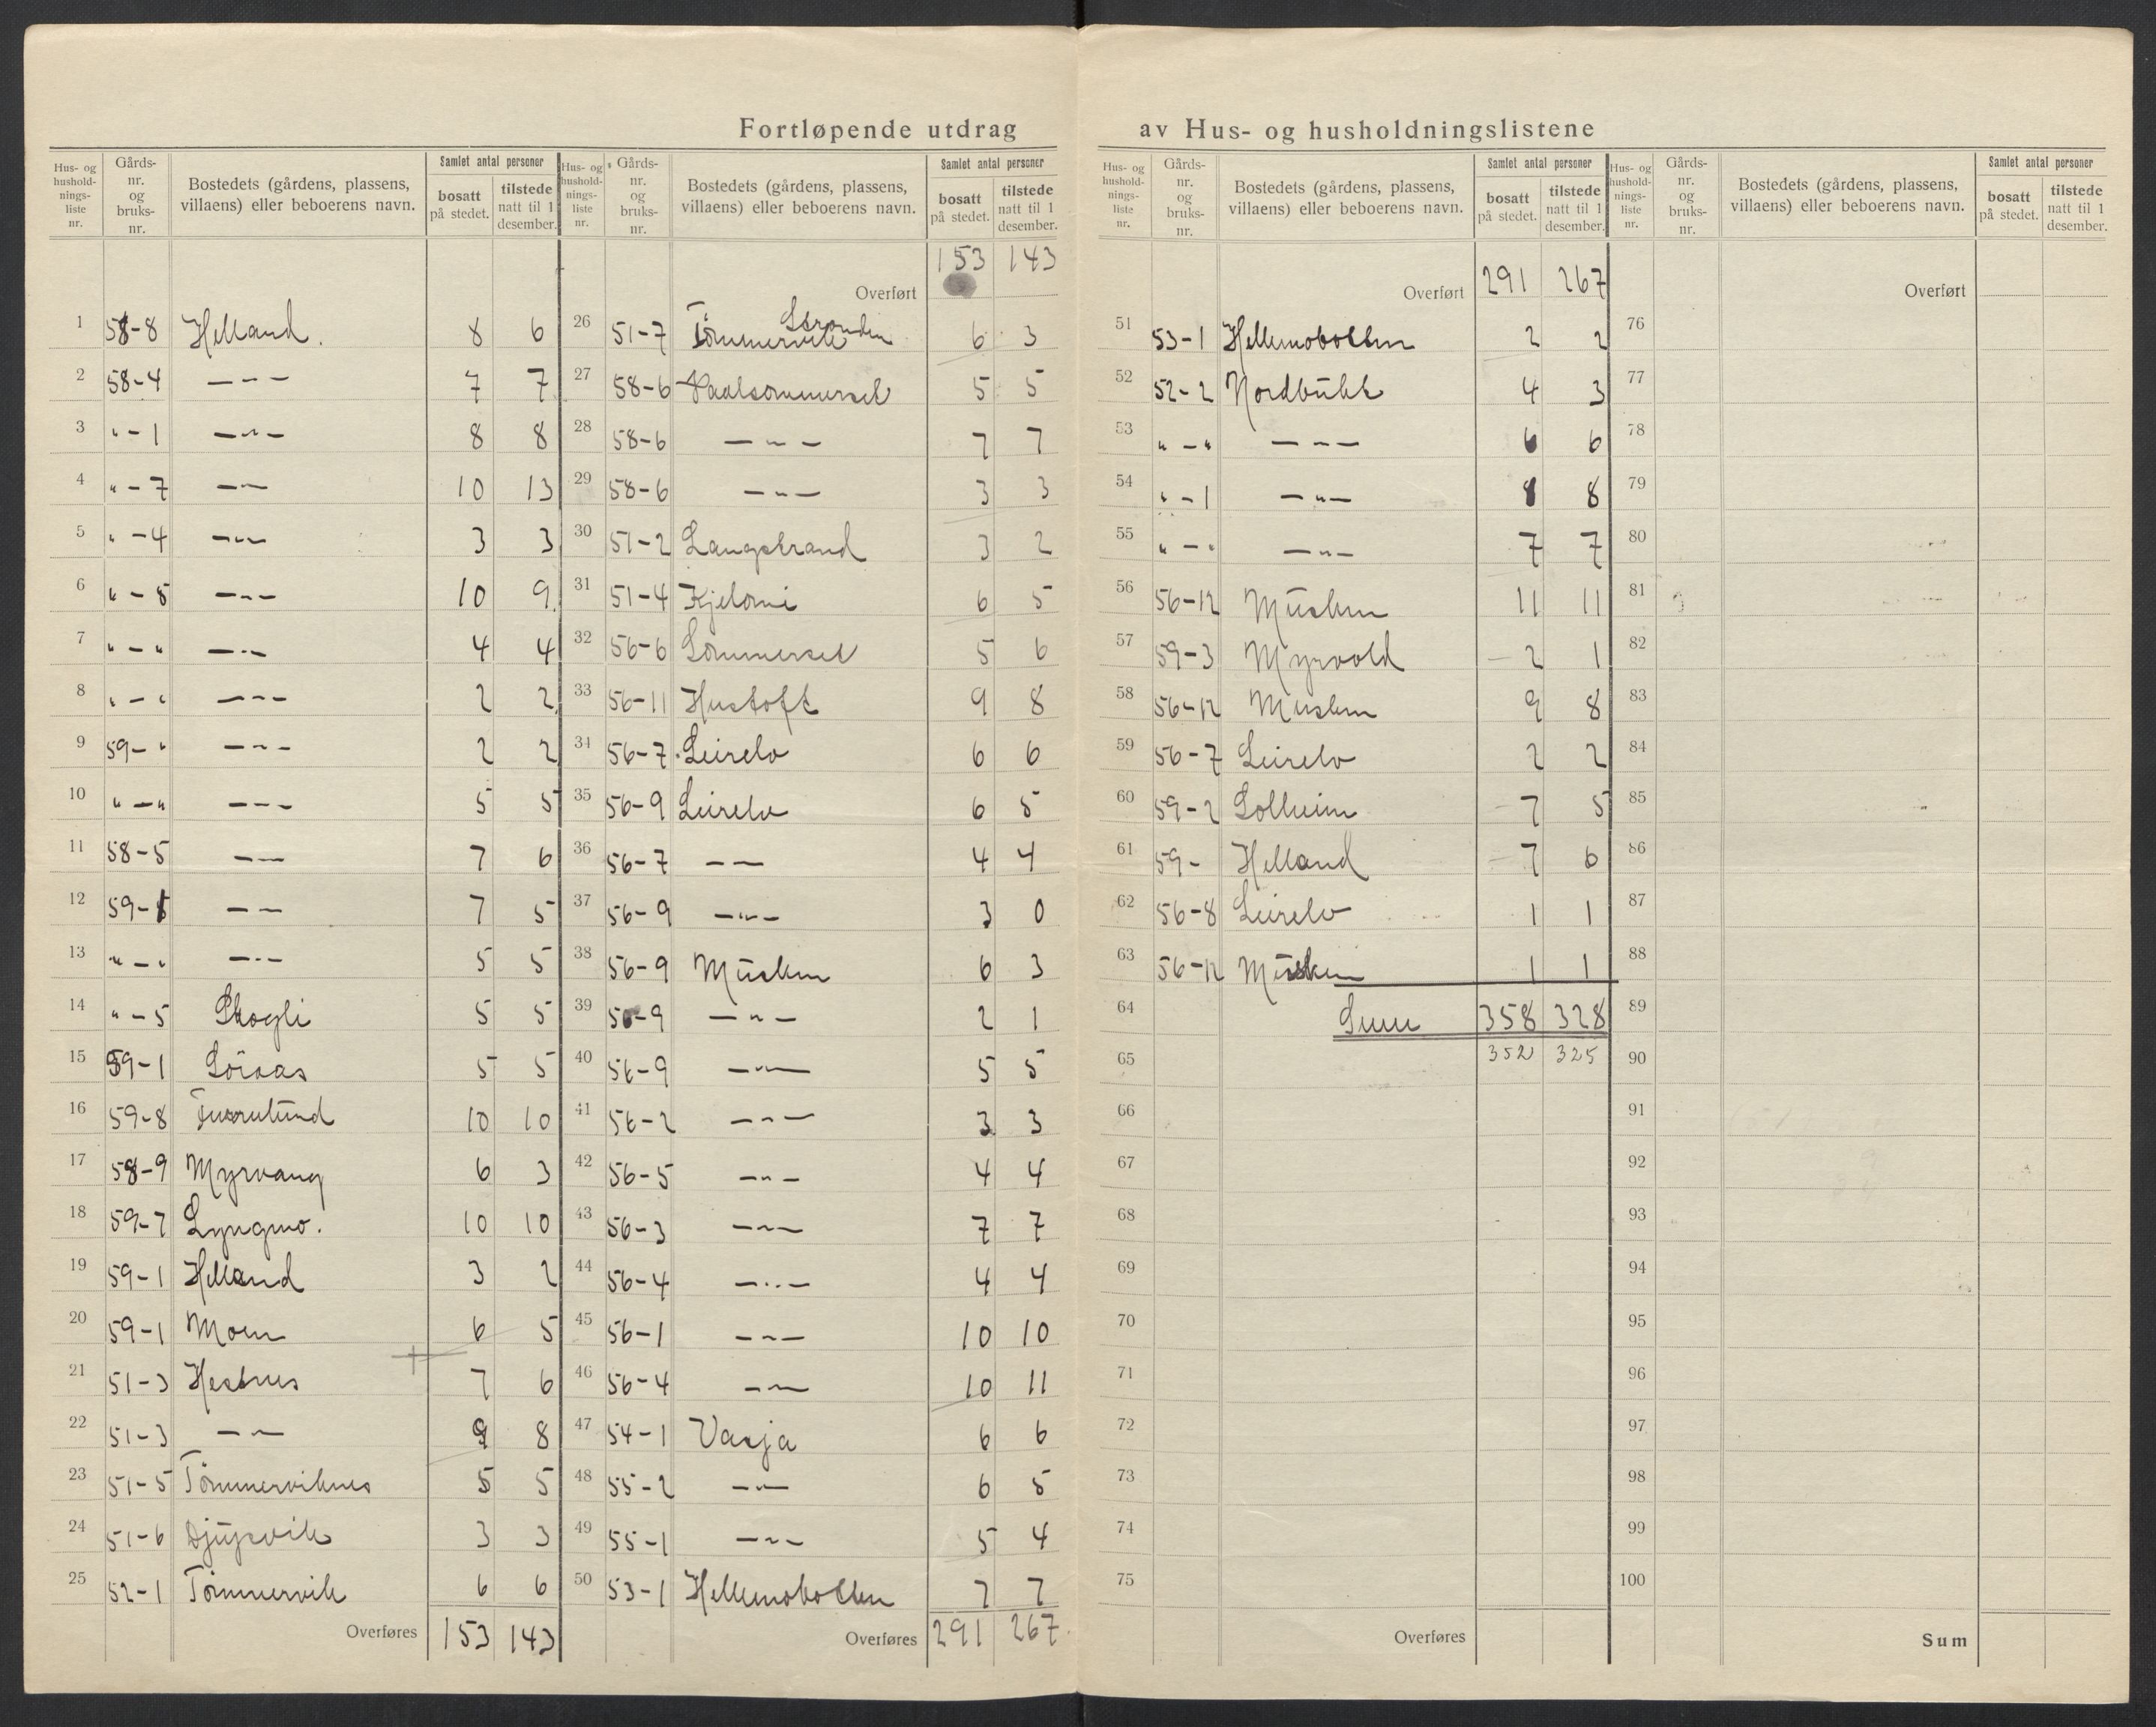 Fortløpende utdrag av Hus- og husholdningslistene
Hus- og husholdnings-liste nr. | Gårds-nr. og bruks-nr. | Bostedets (gårdens, plassens, villaens) eller beboerens navn. | Samlet antal personer bosatt på stedet. | tilstede natt til 1 desember.
1 58-8 Helland. 8 6
2 58-4 — " — 7 7
3 " - 1 — " — 8 8
4 " - 7 — " — 10 13
5 " - 4 — " — 3 3
6 " - 8 — " — 10 9
7 " - " — " — 4 4
8 " - " — " — 2 2
9 59 - " — " — 2 2
10 " - " — " — 5 5
11 58-5 — " — 7 6
12 59-1 — " — 7 5
13 " - " — " — 5 5
14 " - 5 Skogli 5 5
15 59-1 Söraas 5 5
16 59-8 Furulund 10 10
17 58-9 Myrvang 6 3
18 59-7 Lyngmo. 10 10
19 59-1 Helland 3 2
20 59-1 Moen 6 5
21 51-3 Hestnes 7 6
22 51-3 — " — 9 8
23 51-5 Tömmerviknes 5 5
24 51-6 Djupvik 3 3
25 52-1 Tömmervik 6 6
Overføres 153 143
Hus- og husholdnings-liste nr. | Gårds-nr. og bruks-nr. | Bostedets (gårdens, plassens, villaens) eller beboerens navn. | Samlet antal personer bosatt på stedet. | tilstede natt til 1 desember.
Overført 153 143
26 51-7 Tömmervik Stranden 6 3
27 58-6 5 5
28 58-6 — " — 7 7
29 58-6 — " — 3 3
30 51-2 Langstrand 3 2
31 51-4 6 5
32 56-6 Sommersel 5 6
33 56-11 Hustoft 9 8
34 56-7 Leirelv 6 6
35 56-9 Leirelv 6 5
36 56-7 — " — 4 4
37 56-9 — " — 3 0
38 56-9 Müsken 6 3
39 56-9 — " — 2 1
40 56-9 — " — 5 5
41 56-2 — " — 3 3
42 56-5 — " — 4 4
43 56-3 — " — 7 7
44 56-4 — " — 4 4
45 56-1 — " — 10 10
46 56-4 — " — 10 11
47 54-1 Vasja 6 6
48 55-2 — " — 6 5
49 55-1 — " — 5 4
50 53-1 Hellemobotten 7 7
Overføres 291 267
Hus- og husholdnings-liste nr. | Gårds-nr. og bruks-nr. | Bostedets (gårdens, plassens, villaens) eller beboerens navn. | Samlet antal personer bosatt på stedet. | tilstede natt til 1 desember.
Overført 291 267
51 53-1 Hellemobotten 2 2
52 52-2 Nordbukt 4 3
53 " - " — " — 6 6
54 " - 1 — " — 8 8
55 " - " — " — 7 7
56 56-12 Müsken 11 11
57 59-3 Myrvold 2 1
58 56-12 Musken 9 8
59 56-7 Leirelv 2 2
60 59-2 Solheim 7 5
61 59- Helland 7 6
62 56-8 Leirelv 1 1
63 56-12 Müsken 1 1
64 Sum 358 328
65 352 325
66
67
68
69
70
71
72
73
74
75
Overføres
Hus- og husholdnings-liste nr. | Gårds-nr. og bruks-nr. | Bostedets (gårdens, plassens, villaens) eller beboerens navn. | Samlet antal personer bosatt på stedet. | tilstede natt til 1 desember.
Overført
76
77
78
79
80
81
82
83
84
85
86
87
88
89
90
91
92
93
94
95
96
97
98
99
100
Sum